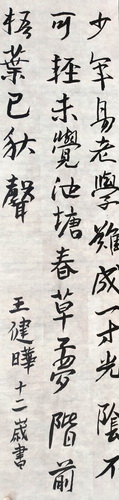 少年易老學難成一寸光陰不
可輕未覺池塘春草夢階前
梧葉已秋聲
王健曄十二歲書